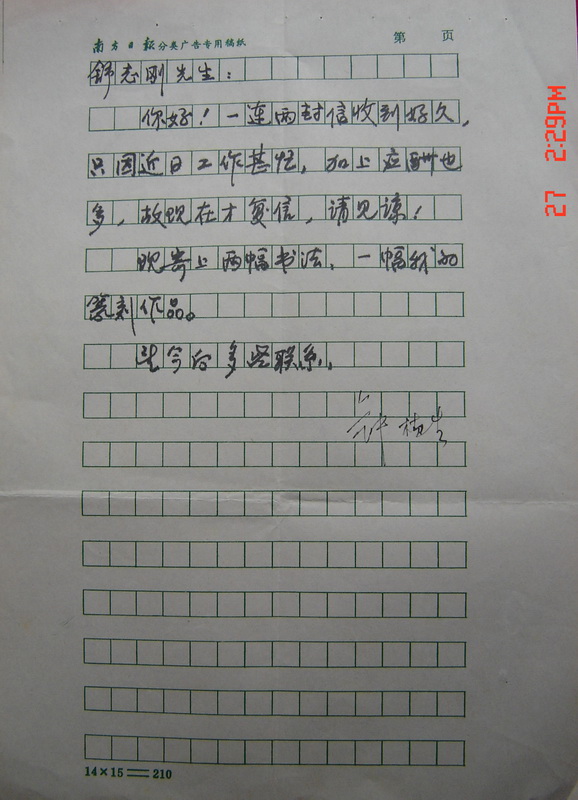 南方日报分类广告专用稿纸 第 页
舒志刚先生：
你好！一连两封信收到好久，
只因近日工作甚忙，加上应酬也
多，故现在才复信，请见谅！
现寄上两幅书法，一幅我的
篆刻作品。
望今后多些联系。
许
14×15＝210
27 2:29PM